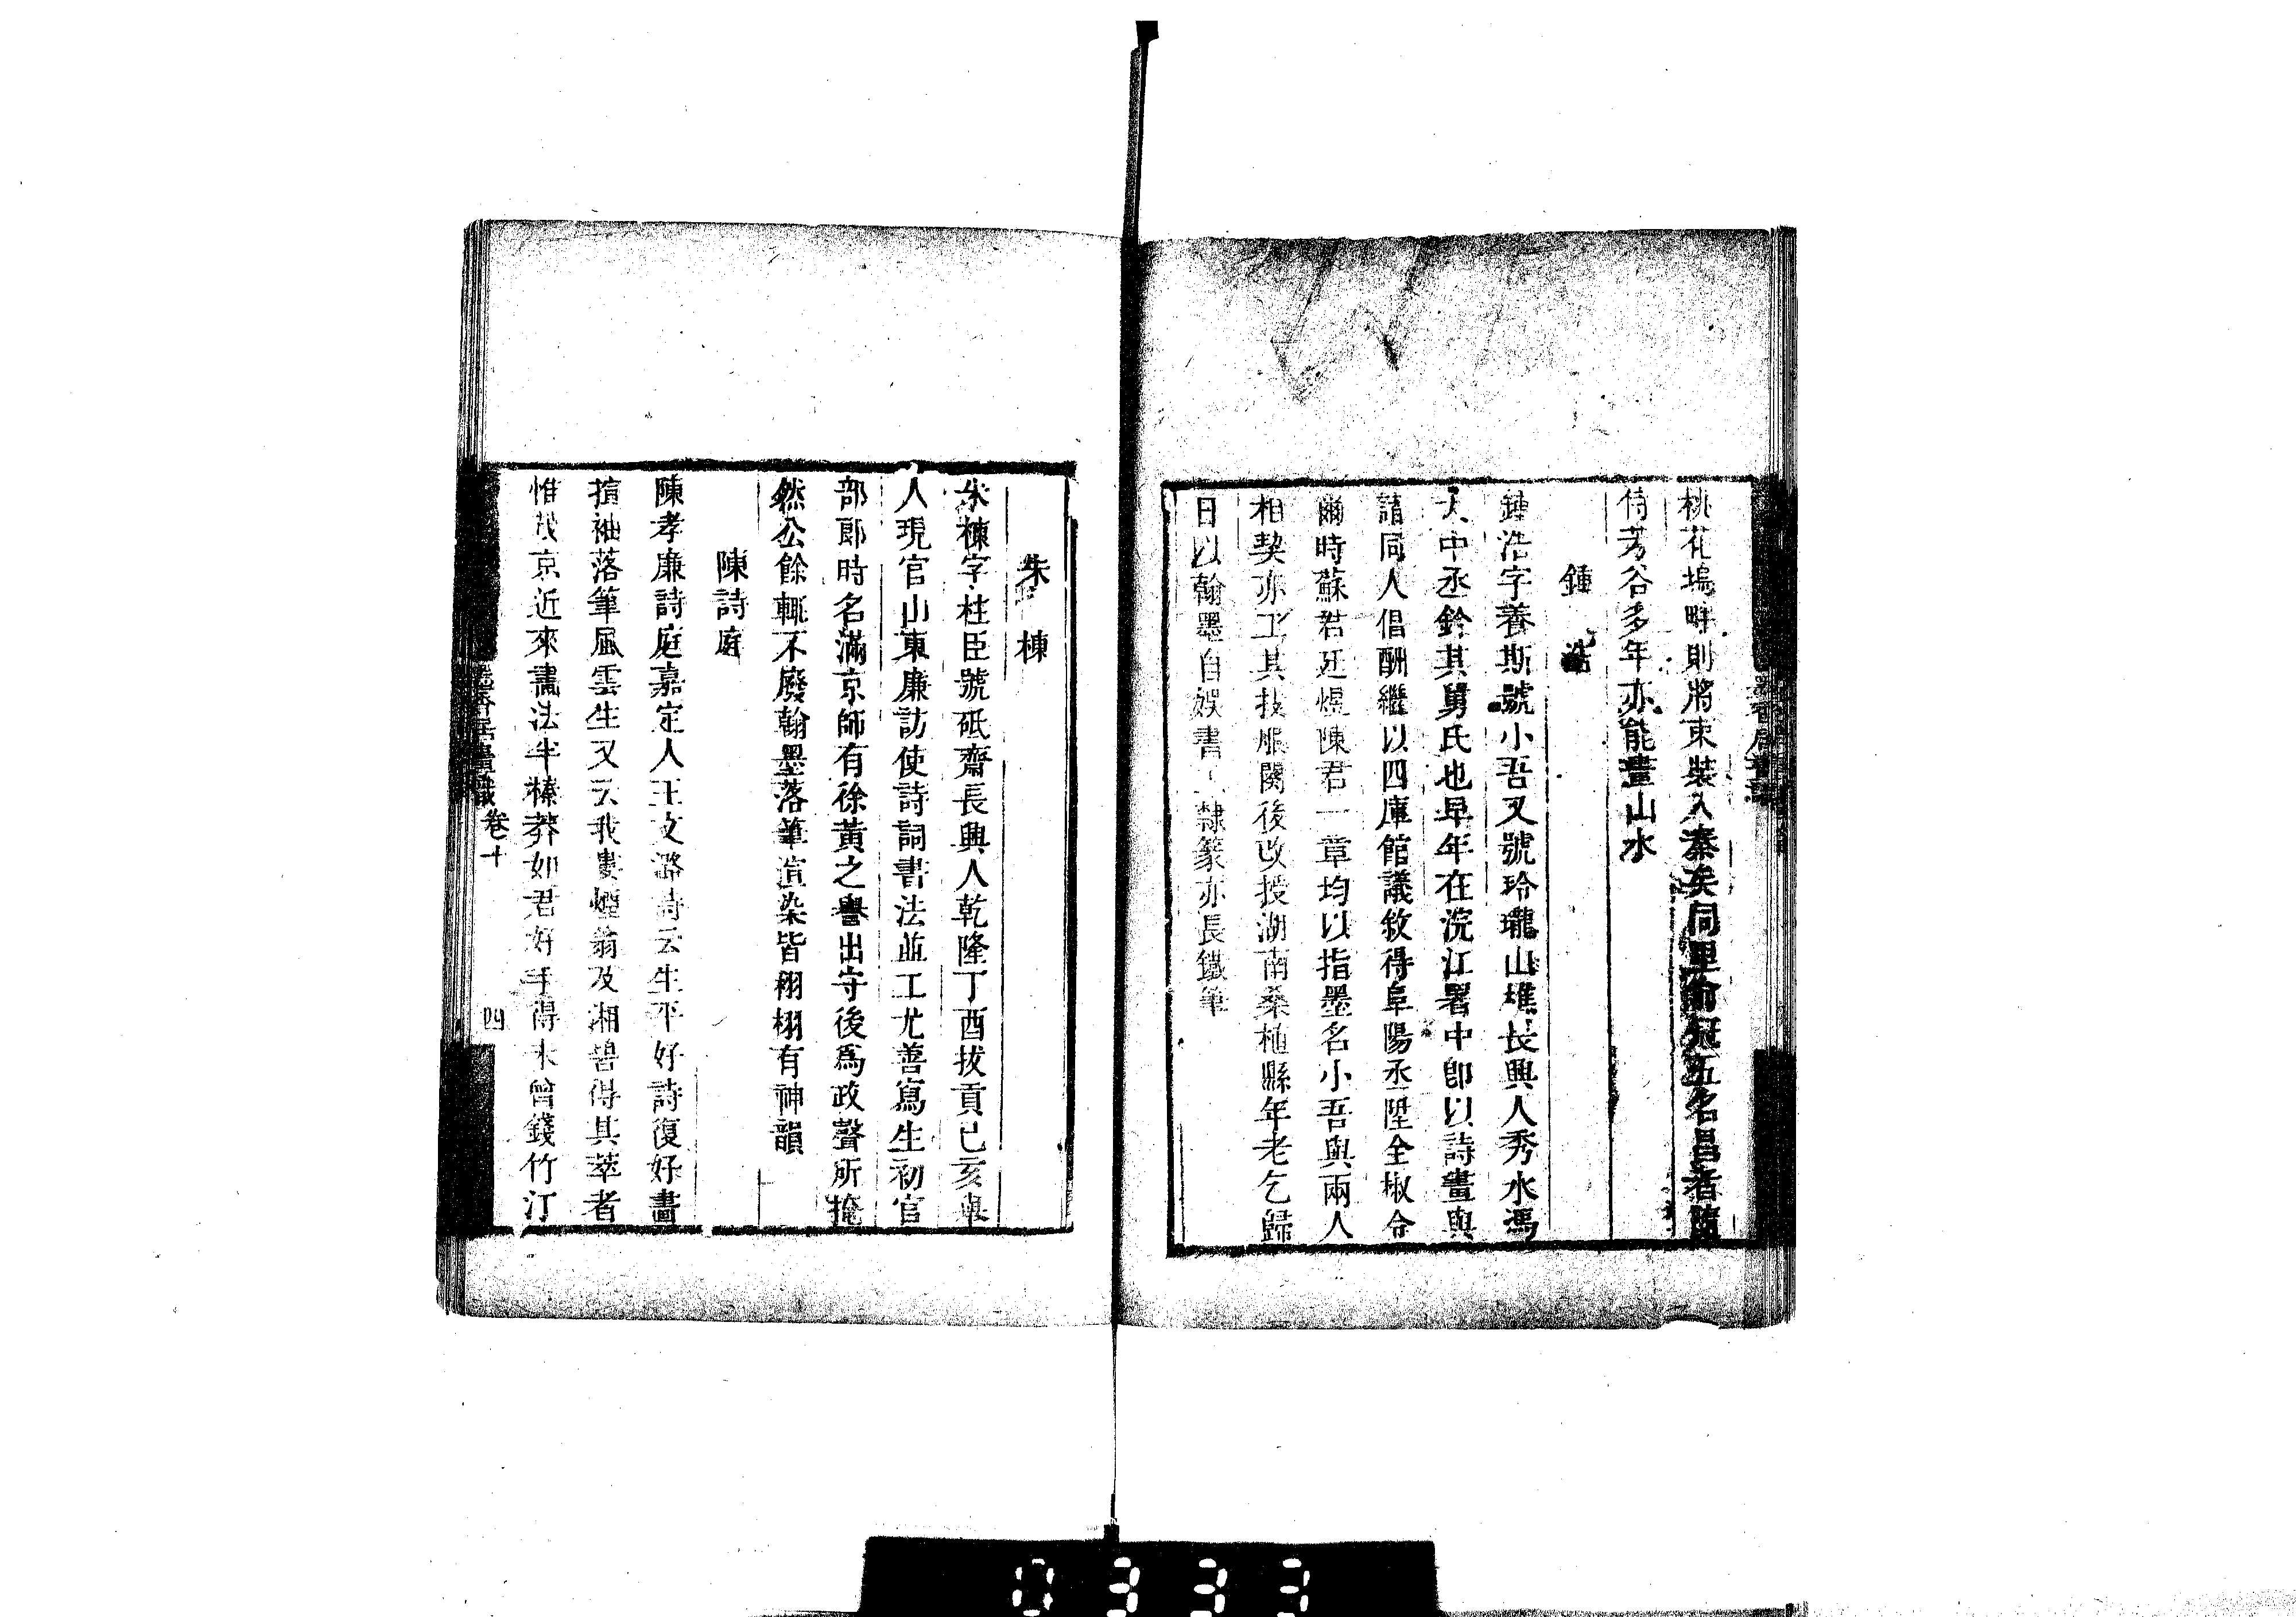 桃花塢畔則將束裝入秦矣同里俞根五名昌者隨
侍芳谷多年亦能畫山水
鍾浩
鍾浩字養斯號小吾又號玲瓏山樵長興人秀水馮
大中丞鈐其舅氏也早年在浣江署中即以詩畫與
諸同人倡酬繼以四庫館議敘得阜陽丞陞全椒令
爾時蘇君廷煜陳君一章均以指墨名小吾與兩人
相契亦工其技服闋後改授湖南桑植縣年老乞歸
日以翰墨自娛書工隸篆亦長鐵筆
朱棟
朱棟字柱臣號砥齋長興人乾隆丁酉拔貢己亥舉
人現官山東廉訪使詩詞書法並工尤善寫生初官
部郎時名滿京師有徐黃之譽出守後爲政聲所掩
然公餘輒不廢翰墨落筆渲染皆栩栩有神韻
陳詩庭
陳孝廉詩庭嘉定人王文潞詩云生平好詩復好畫
揎袖落筆風雲生又云我婁煙翁及湘碧得其萃者
惟茂京近來畫法半榛莽如君好手得未曾錢竹汀
墨香居畫識 卷十
四
墨香居畫識
0333